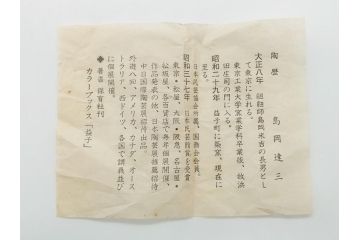 陶歴
島岡達三
大正八年 組紐師島岡米吉の長男とし
て東京に生れる。
東京工業大学窯業学科卒業後、故浜
田庄司の門に入る。
昭和二十九年 益子町に築窯、現在に
至る。
日本民芸協会所属、国画会会員。
昭和三十七年 日本民芸館賞を受賞
東京・松屋、大阪・阪急、名古屋・
松坂屋、各百貨店で毎年個展開催、
作品発表の他、日本陶芸展推薦招待
中日国際陶芸展招待出品。
外遊八回、アメリカ、カナダ、オース
トラリア、西ドイツ、各国で講義並び
に個展開催。
◆著書 保育社刊
カラーブックス「益子」